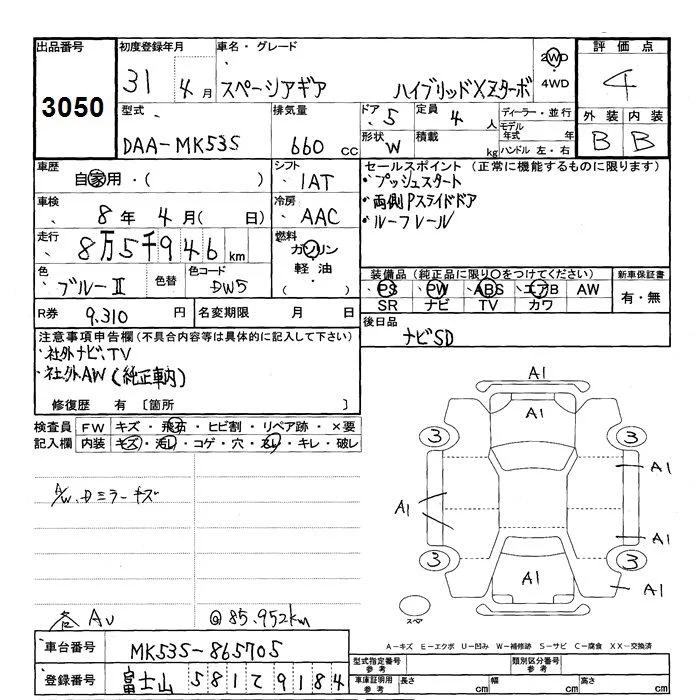 出品番号
3050
初度登録年月
31 4月
車名・グレード
スペーシアギア ハイブリッドXZターボ
2WD
・
4WD
評価点
4
外装 内装
B B
型式
DAA-MK53S
排気量
660 cc
ドア 5
形状 W
定員 4 人
積載 kg
ディーラー・並行
モデル年式 年
ハンドル 左・右
車歴
自家用・( )
シフト
IAT
車検
8年 4月( 日)
冷房
AAC
走行
8万5千946km
燃料
ガソリン
軽油・
( )
色
ブルーII
色替
色コード
DW5
R券 9,310 円
名変期限 月 日
セールスポイント(正常に機能するものに限ります)
・プッシュスタート
・両側Pスライドドア
・ルーフレール
装備品(純正品に限り○をつけてください)
PS PW ABS エアB AW
SR ナビ TV カワ
新車保証書
有・無
後日品
ナビSD
注意事項申告欄(不具合内容等は具体的に記入して下さい)
・社外ナビ、TV
・社外AW(純正車内)
修復歴 有〔箇所 〕
検査員記入欄
FW キズ・飛石・ヒビ割・リペア跡・×要
内装 キズ・汚レ・コゲ・穴・スレ・キレ・破レ
A/W、Dミラーキズ
各 AU @85.952km
車台番号
MK53S-865705
登録番号
富士山 581 2 9184
A1
A1
3 3
A1
A1
A1
3 3
A1
A1
スペア
A-キズ E-エクボ U-凹み W-補修跡 S-サビ C-腐食 XX-交換済
型式指定番号 参考
類別区分番号 参考
車庫証明用 参考
長さ cm
幅 cm
高さ cm